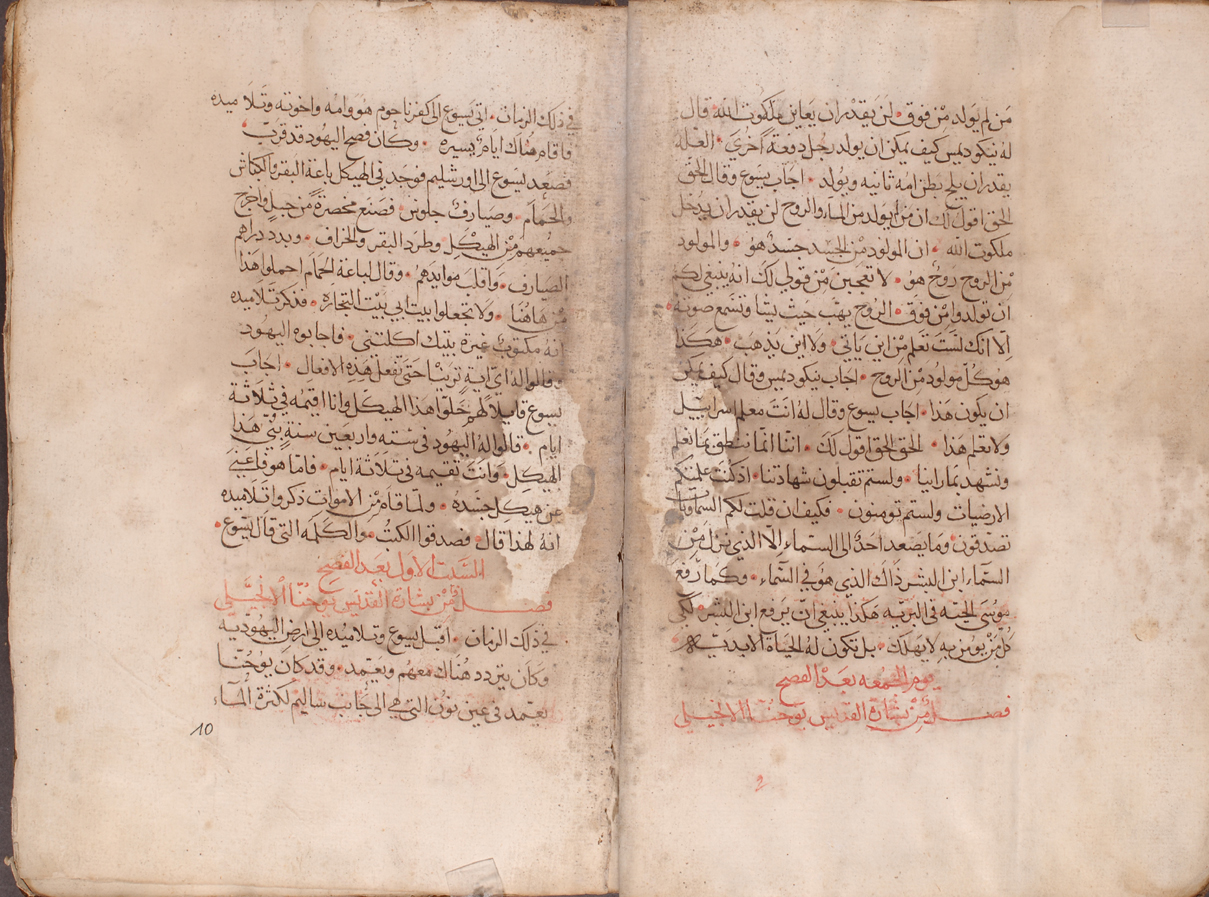 مَن لم يولد من فوق لن يقدر ان يعاين ملكوت الله قال
له نيكوديمس كيف يمكن ان يولد رجل دفعة اخرى العله
يقدر ان يلج بطن امه ثانيه ويولد اجاب يسوع وقال الحق
الحق اقول لك ان من لم يولد من الماء والروح لن يقدر ان يدخل
ملكوت الله ان المولود من الجسد جسد هو والمولود
من الروح روح هو لا تعجبن من قولي لك انه ينبغي لكم
ان تولدوا من فوق الروح يهب حيث يشا وتسمع صوته
الا انك لست تعلم من اين ياتي ولا اين يذهب هكذا
هو كل مولود من الروح اجاب نيكوديمس وقال كيف يمكن
ان يكون هذا اجاب يسوع وقال له انت معلم اسراييل
ولا تعلم هذا الحق الحق اقول لك اننا انما ننطق بما نعلم
ونشهد بما راينا ولستم تقبلون شهادتنا اذ كنت علمتكم
الارضيات ولستم تومنون فكيف ان قلت لكم السماويات
تصدقون وما يصعد احد الى السماء الا الذي نزل من
السماء ابن البشر ذاك الذي هو في السماء وكما رفع
موسى الحيه في البريه هكذا ينبغي ان يرفع ابن البشر لكي
كل من يومن به لا يهلك بل تكون له الحياة الابديه
يوم الجمعه بعد الفصح
فصل من بشارة القديس يوحنا الانجيلي
2
في ذلك الزمان اتى يسوع الى كفرناحوم هو وامه واخوته وتلاميذه
فاقام هناك ايام يسيره وكان فصح اليهود قد قرب
فصعد يسوع الى اورشليم فوجد في الهيكل باعة البقر والكباش
والحمام وصيارف جلوس فصنع مخصرة من حبل واخرج
جميعهم من الهيكل وطرد البقر والخراف وبدد دراهم
الصيارف واقلب موايدهم وقال لباعة الحمام احملوا هذا
من هاهنا ولا تجعلوا بيت ابي بيت التجارة فذكر تلاميذه
انه مكتوب غيرة بيتك اكلتني فاجابوه اليهود
وقالوا له اي اية ترينا حتى تفعل هذه الافعال اجاب
يسوع قايلا لهم حلوا هذا الهيكل وانا اقيمه في ثلاثة
ايام قالوا له اليهود في سته واربعين سنة بني هذا
الهيكل وانت تقيمه في ثلاثة ايام فاما هو فاعنى
عن هيكل جسده ولما قام من الاموات ذكروا تلاميذه
انه لهذا قال فصدقوا الكتب والكلمه التي قال يسوع
السبت الاول بعد الفصح
فصل من بشارة القديس يوحنا الانجيلي
في ذلك الزمان اقبل يسوع وتلاميذه الى ارض اليهوديه
وكان يتردد هناك معهم ويعتمد وقد كان يوحنا
يعتمد في عين نون التي هي الى جانب ساليم لكثرة الماء
10